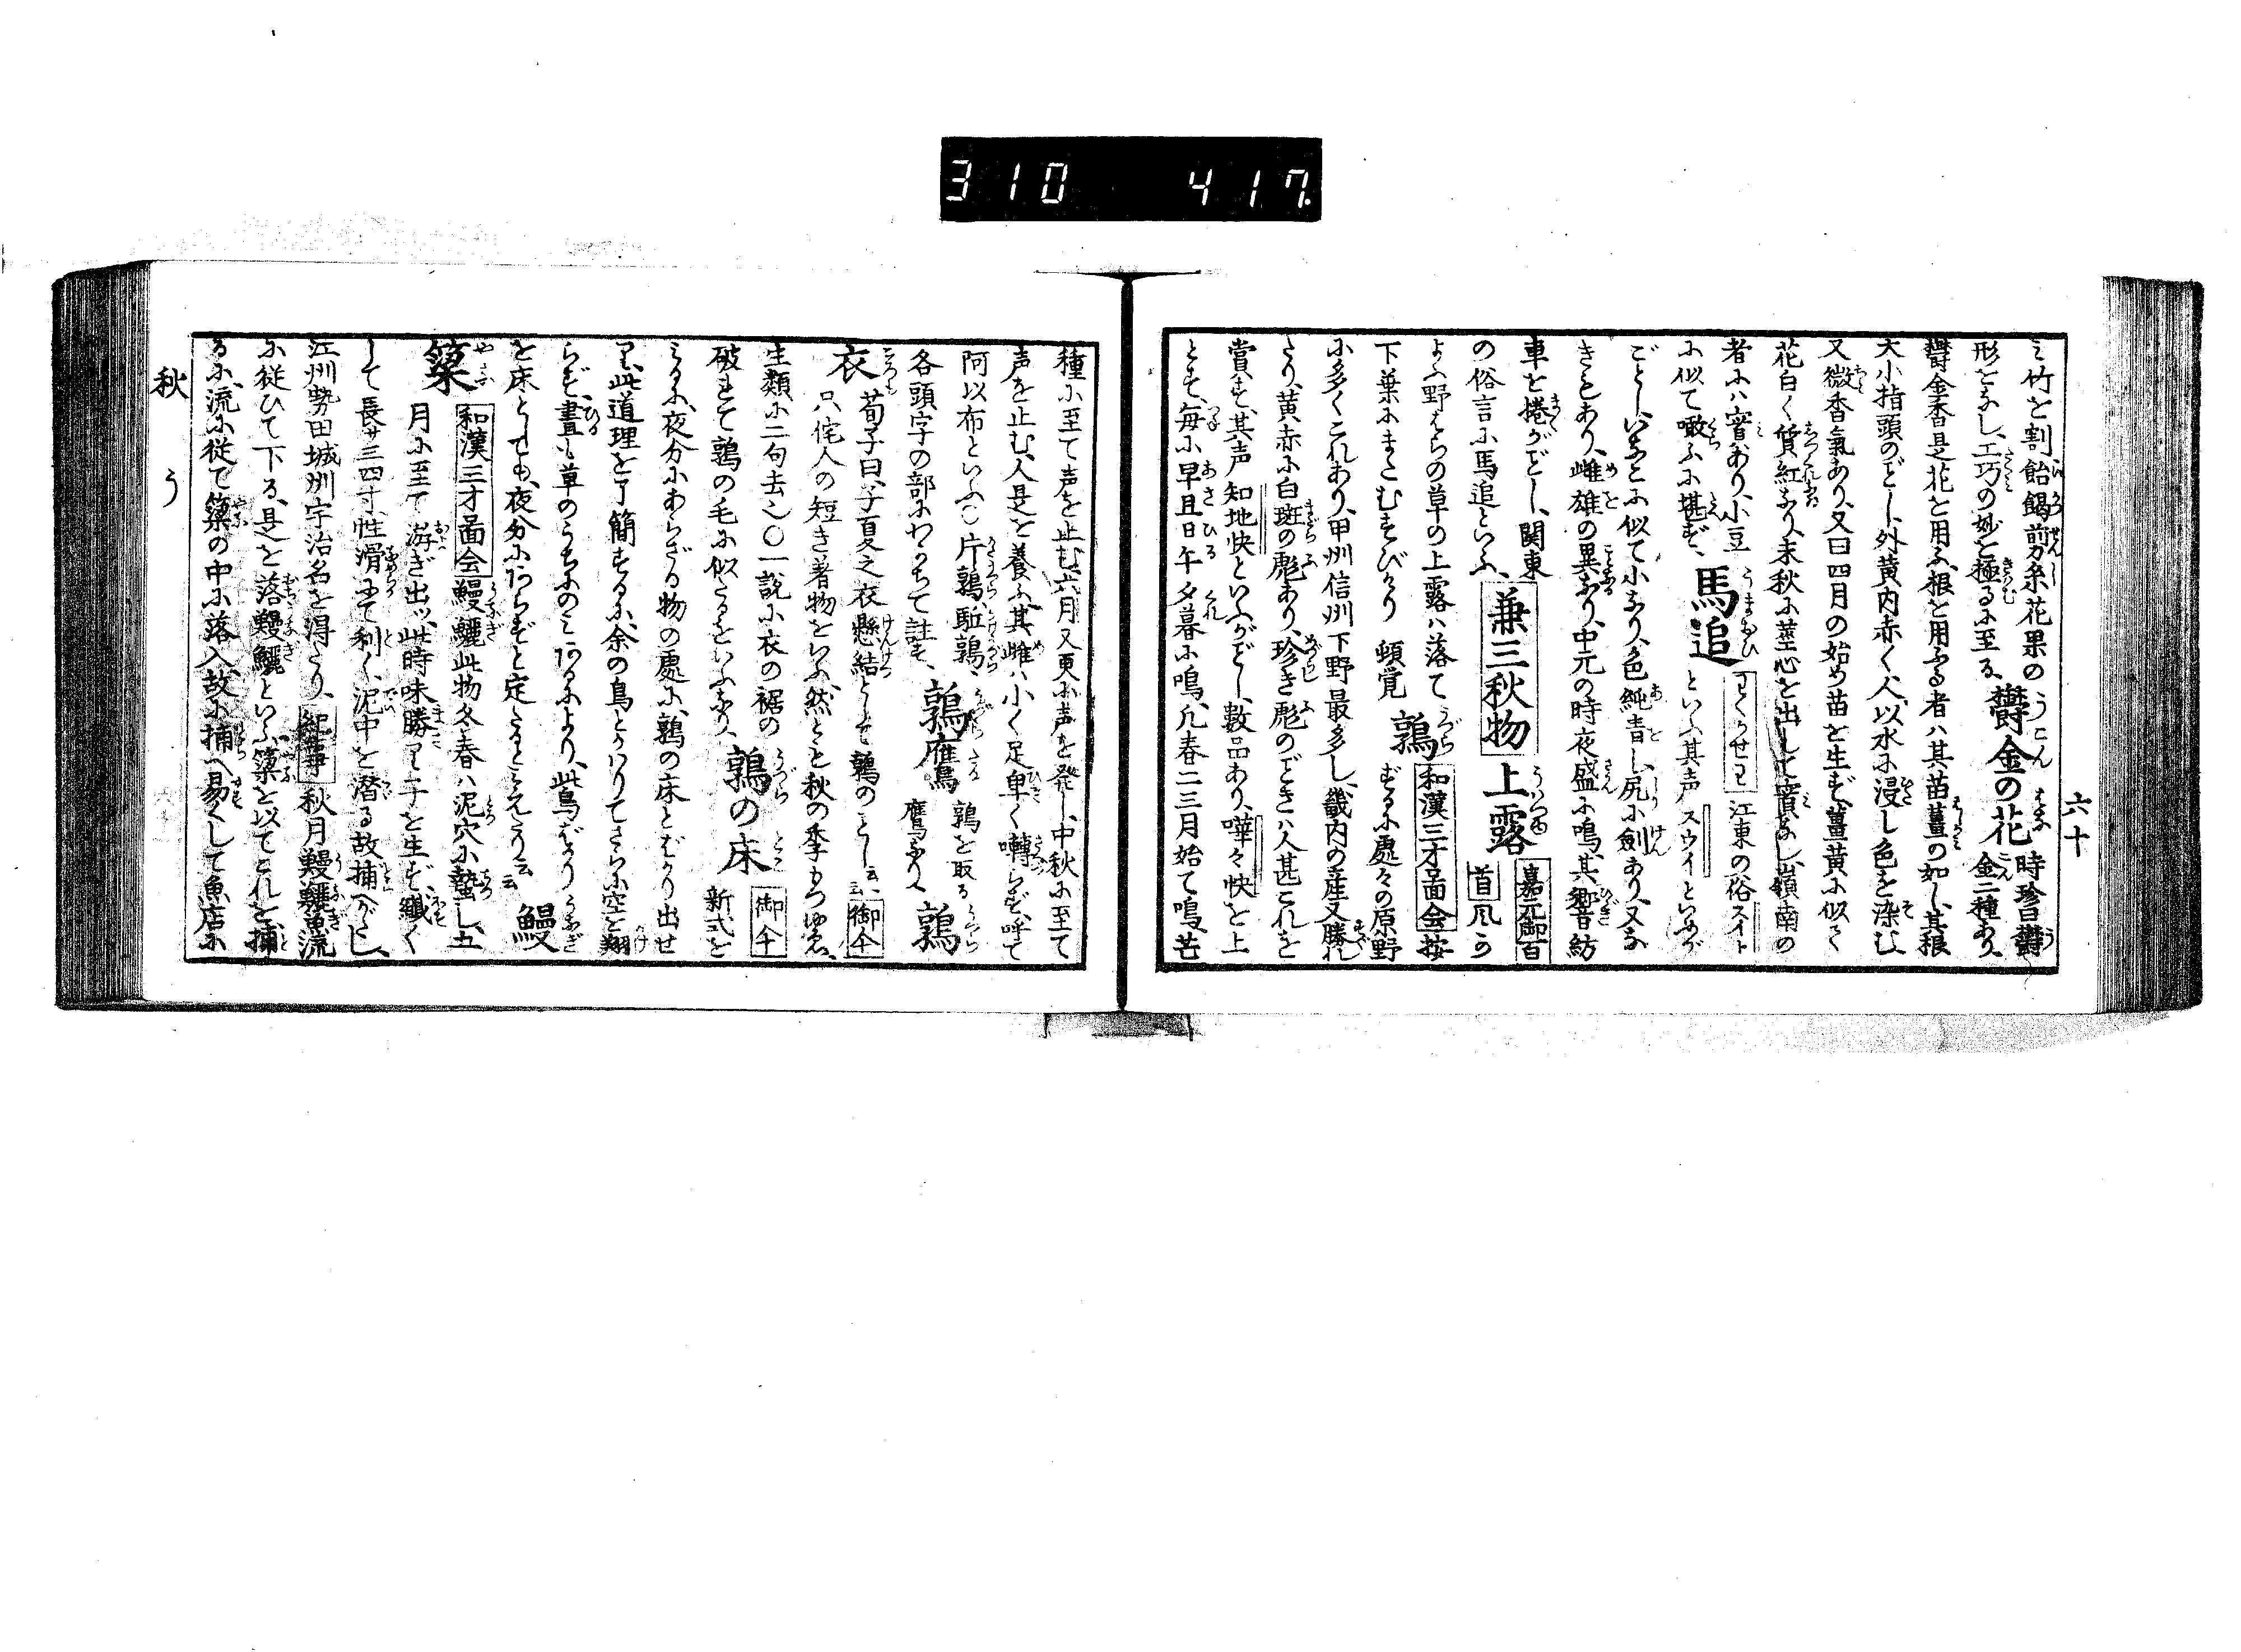 310 417
六十
竹を割、飴餲煎糸花果の
形をなし、工巧の妙を極るに至る、
欝金の花 時珍曰、欝金二種あり、
欝金香是花を用ふ、根を用ふる者ハ其苗薑の如し、其根
大小指頭のごとし、外黄内赤く、人以水に浸し色を染む、
又微香氣あり、又曰四月の始め苗を生ず、薑黄に似て
花白く質紅なり、末秋に莖心を出して實なし、嶺南の
者にハ實あり、小豆
に似て噉ふに堪ず、
馬追 江東の俗スイト
といふ、其声スウイといふが
ごとし、いなごに似て小なり、色純青し、尻に劔あり、又な
きもあり、雌雄の異なり、中元の時夜盛に鳴、其響紡
車を捲がごとし、関東
の俗言に馬追といふ、
兼三秋物
上露 嘉元御百首 風の
よふ野はらの草の上露ハ落て
下葉にまたむすびけり 頓覚
鶉 和漢三才圖会 按
ずるに處々の原野
に多くこれあり、甲州信州下野最多し、畿内の産又勝れ
たり、黄赤に白斑の彪あり、珍き彪のごときハ人甚これを
賞す、其声知地快といふがごとし、數品あり、嘩々快を上
とす、毎に早旦日午夕暮に鳴、凡春二三月始て鳴、芒
種に至て声を止む、六月又更に声を発し、中秋に至て
声を止む、人是を養ふ、其雌ハ小く足卑く囀らず、呼て
阿以布といふ○片鶉、駈鶉、
各頭字の部にわかちて註す、
鶉鷹 鶉を取る
鷹なり、
鶉衣 荀子曰、子夏之衣懸結として鶉のごとし云云、御傘
只侘人の短き著物をいふ、然ども秋の季もつゆゑ、
生類に二句去之○一説に衣の裾の
破れて鶉の毛に似たるをいふなり、
鶉の床 御傘
新式を
みるに、夜分にあらざる物の處に、鶉の床とばかり出せ
り、此道理を了簡するに、余の鳥とかハりてさらに空を翔
らず、晝も草のうちにのみあるにより、此鳥ばかり
を床としても、夜分にあらずと定たるとみえたり云云
鰻
簗 和漢三才圖会 鰻鱺此物冬春ハ泥穴に蟄し、五
月に至て游ぎ出ツ、此時味勝り、子を生ず、纎く
して長サ三四寸、性滑にて利く、泥中を潜る故捕へがたし、
江州勢田城州宇治名を得たり、紀事 秋月鰻鱺魚流
に從ひて下る、是を落鰻鱺といふ、簗を以てこれを捕
るに、流に從て簗の中に落入、故に捕へ易くして魚店に
秋 う